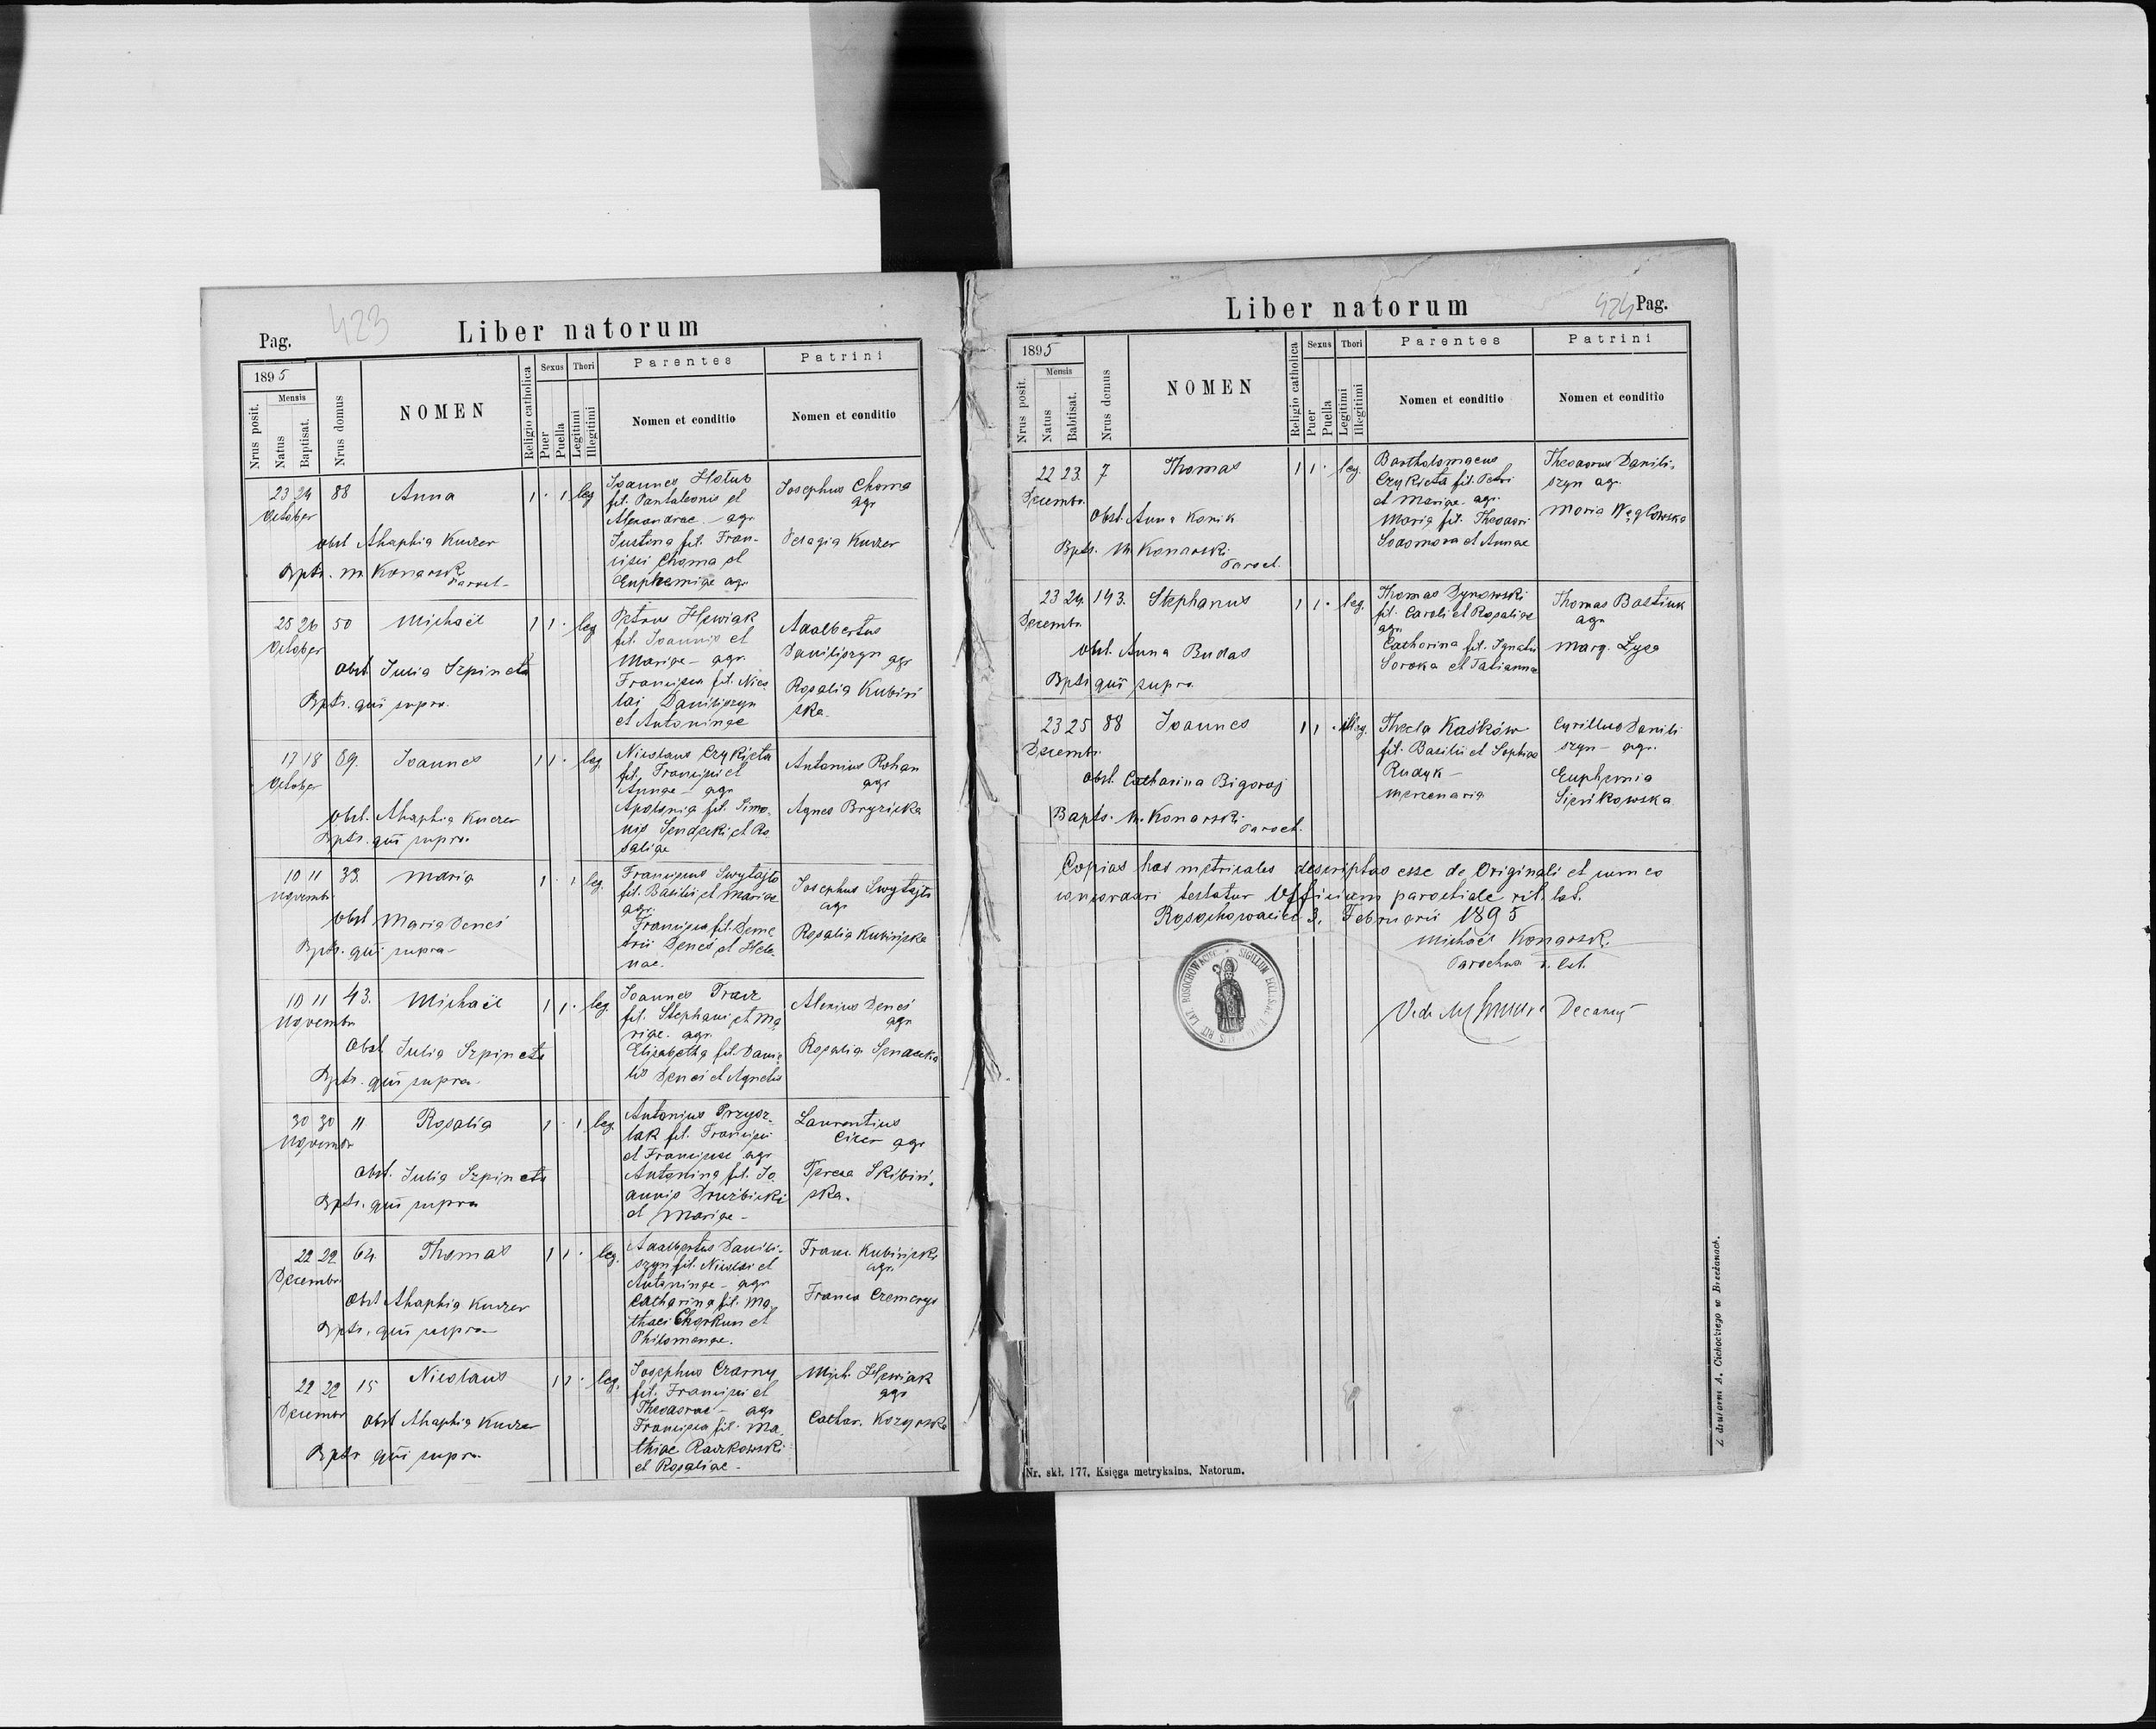 423
Pag.
Liber natorum
1895
Nrus posit.
Mensis
Natus
Baptisat.
Nrus domus
NOMEN
Religio catholica
Sexus
Puer
Puella
Thori
Legitimi
Illegitimi
Parentes
Nomen et conditio
Patrini
Nomen et conditio
23 24 88 Anna 1 · 1 leg
October
obst Ahaphia Kuczer
Bpts. M Konarski
Paroch
Joannes Hołub
fil. Pantaleonis et
Alexandrae - agr.
Justina fil. Fran-
cisci Choma et
Euphemiae agr.
Josephus Choma
agr
Pelagia Kuczer
25 26 50 Michaël 1 1 · leg
October
obst Julia Szpineta
Bpts. qui supra.
Petrus Hewiak
fil. Joannis et
Mariae - agr.
Francisca fil. Nico
lai Daniliszyn
et Antoninae
Adalbertus
Daniliszyn agr
Rosalia Kubiń
ska.
17 18 89. Joannes 1 1 · leg
October
Obst. Ahaphia Kuczer
Bpts. qui supra.
Nicolaus Czykieta
fil. Francisci et
Annae - agr
Apolonia fil. Simo-
nis Sendecki et Ro
saliae
Antonius Rohan
agr
Agnes Bryzicka
10 11 33. Maria 1 · 1 leg.
Novembr
Obst Maria Deneś
Bpts. qui supra-
Franciscus Swytajło
fil. Basilii et Mariae
agr.
Francisca fil. Deme
trii Deneś et Hele-
nae.
Josephus Swytajło
agr
Rosalia Kubińska
10 11 43. Michaël 1 1 · leg.
Novembr
Obst Julia Szpineta
Bpts. qui supra-
Joannes Tracz
fil. Stephani et Ma
riae. agr.
Elisabetha fil. Danie
lis Deneś et Agnetis
Alexius Deneś
agr
Rosalia Sendecka
30 30 11 Rosalia 1 · 1 leg.
Novembr
obst. Julia Szpineta
Bpts. qui supra
Antonius Przysz-
lak fil. Francisci
et Franciscae agr
Antonina fil. Jo
annis Drużbicki
et Mariae -
Laurentius
Cicer agr
Teresa Skibiń-
ska.
22 22 64. Thomas 1 1 · leg.
Decembr
Obst Ahaphia Kuczer
Bpts. qui supra-
Adalbertus Danili-
szyn fil. Nicolai et
Antoninae - agr
Catharina fil. Ma-
thaei Chorkun et
Philomenae.
Franc. Kubiński
agr.
Franca Czemerys
22 22 15 Nicolaus 1 1 · leg.
Decembr
Obst Ahaphia Kuczer
Bpts qui supra
Josephus Czarny
fil. Francisci et
Theodorae - agr
Francisca fil. Ma-
thiae Raczkowski
et Rosaliae -
Mich. Hewiak
agr
Cathar. Kozyrska
Liber natorum
424 Pag.
1895
Nrus posit.
Mensis
Natus
Babtisat.
Nrus domus
NOMEN
Religio catholica
Sexus
Puer
Puella
Thori
Legitimi
Illegitimi
Parentes
Nomen et conditio
Patrini
Nomen et conditio
22 23. 7 Thomas 1 1 · leg.
Decembr.
Obst. Anna Konik
Bpts. M Konarski
Paroch.
Bartholomaeus
Czykieta fil. Petri
et Mariae - agr.
Maria fil. Theodori
Sodomora et Annae
Theodorus Danili-
szyn agr.
Maria Węglowska
23 24 143. Stephanus 1 1 · leg.
Decembr.
obst. Anna Budas
Bpts qui supra.
Thomas Dynowski
fil. Caroli et Rosaliae
agr.
Catharina fil. Ignatii
Soroka et Tatiannae
Thomas Bastiuk
agr
Marg. Łysa
23 25 88 Joannes 1 1 · illeg.
Decembr.
Obst. Catharina Bigoraj
Bapts. M. Konarski
Paroch.
Thecla Kaśków
fil. Basilii et Sophiae
Rudyk -
mercenaria
Cyrillus Danili
szyn - agr.
Euphemia
Sieńkowska
Copias has metricales descriptas esse de Originali et cum eo
concordari testatur Officium parochiale rit. lat.
Rosochowaciec 3. Februarii 1895
Michaël Konarski
Parochus r. lat.
Decanus
SIGILLUM ECCLESIAE RIT LAT ROSOCHOWACIEC
Nr. skł. 177, Księga metrykalna, Natorum.
Z drukarni A. Cichockiego w Brzeżanach.